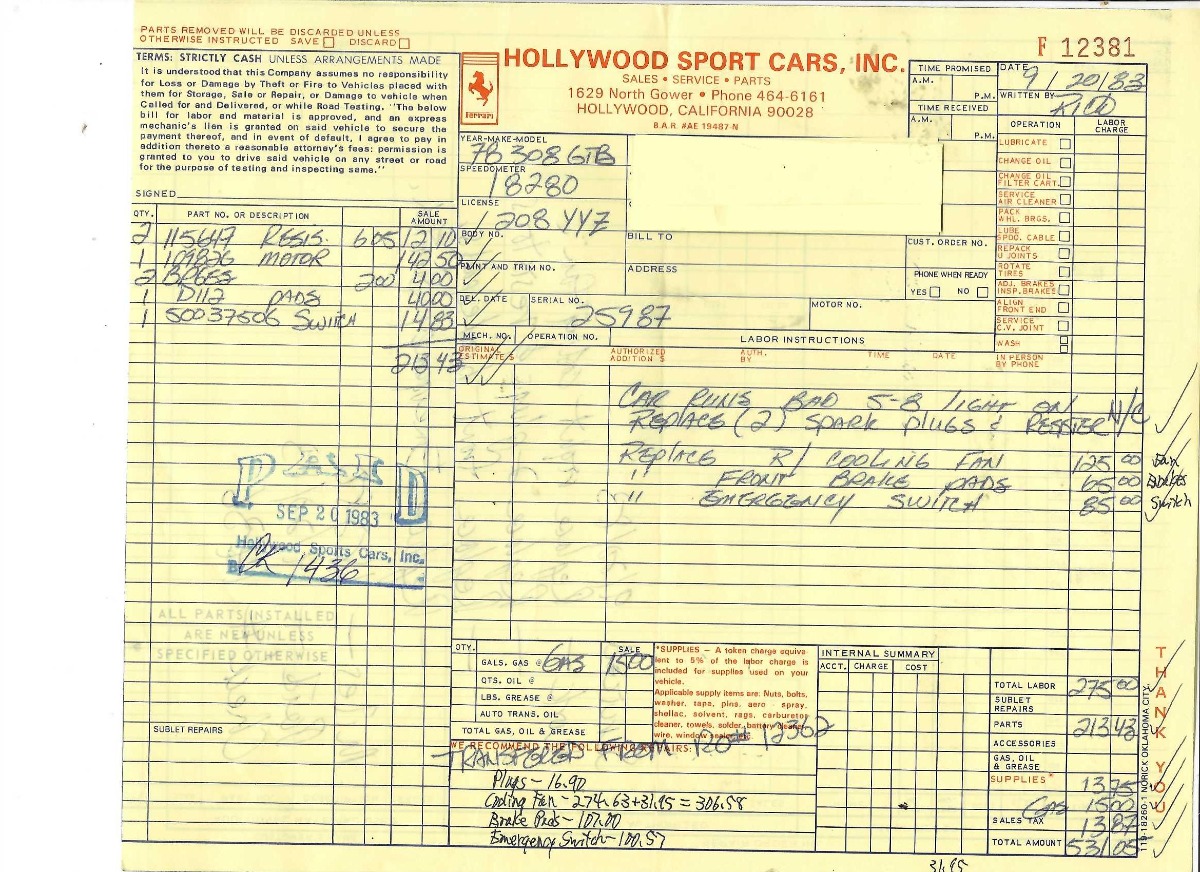 PARTS REMOVED WILL BE DISCARDED UNLESS
OTHERWISE INSTRUCTED SAVE DISCARD
TERMS: STRICTLY CASH UNLESS ARRANGEMENTS MADE
It is understood that this Company assumes no responsibility
for Loss or Damage by Theft or Fire to Vehicles placed with
them for Storage, Sale or Repair, or Damage to vehicle when
Called for and Delivered, or while Road Testing. "The below
bill for labor and material is approved, and an express
mechanic's lien is granted on said vehicle to secure the
payment thereof, and in event of default, I agree to pay in
addition thereto a reasonable attorney's fees: permission is
granted to you to drive said vehicle on any street or road
for the purpose of testing and inspecting same."
SIGNED
Ferrari
HOLLYWOOD SPORT CARS, INC.
SALES • SERVICE • PARTS
1629 North Gower • Phone 464-6161
HOLLYWOOD, CALIFORNIA 90028
B.A.R. #AE 19487-N
F 12381
TIME PROMISED
A.M.
P.M.
TIME RECEIVED
A.M.
P.M.
DATE 9/20/83
WRITTEN BY RICO
OPERATION LABOR CHARGE
LUBRICATE
CHANGE OIL
CHANGE OIL FILTER CART.
SERVICE AIR CLEANER
PACK WHL. BRGS.
LUBE SPDO. CABLE
REPACK U JOINTS
ROTATE TIRES
ADJ. BRAKES INSP. BRAKES
ALIGN FRONT END
SERVICE C.V. JOINT
WASH
IN PERSON BY PHONE
YEAR-MAKE-MODEL
78 308 GTB
SPEEDOMETER
18280
LICENSE
1208 YYZ
BODY NO.
PAINT AND TRIM NO.
BILL TO
ADDRESS
CUST. ORDER NO.
PHONE WHEN READY
YES NO
DEL. DATE
SERIAL NO.
25987
MOTOR NO.
MECH. NO. OPERATION NO. LABOR INSTRUCTIONS
ORIGINAL ESTIMATE $ AUTHORIZED ADDITION $ AUTH. BY TIME DATE
QTY. PART NO. OR DESCRIPTION SALE AMOUNT
2 115617 RESIS. 605 12 10
1 109826 MOTOR 142 50
2 BP6ES 200 4 00
1 D112 PADS 40 00
1 50037506 SWITCH 14 83
213 43
CAR RUNS BAD 5-8 LIGHT ON
REPLACE (2) SPARK PLUGS & RESISTER N/C
REPLACE R/ COOLING FAN 125 00 Fan
" FRONT BRAKE PADS 65 00 Brakes
" EMERGENCY SWITCH 85 00 Switch
PAID
SEP 20 1983
Hollywood Sports Cars, Inc.
By
CK 1436
ALL PARTS INSTALLED
ARE NEW UNLESS
SPECIFIED OTHERWISE
SUBLET REPAIRS
QTY. SALE
GALS. GAS @ GAS 15 00
QTS. OIL @
LBS. GREASE @
AUTO TRANS. OIL
TOTAL GAS, OIL & GREASE
*SUPPLIES – A token charge equiva
lent to 5% of the labor charge is
included for supplies used on your
vehicle.
Applicable supply items are: Nuts, bolts,
washer, tape, pins, aero - spray,
shellac, solvent, rags, carburetor
cleaner, towels, solder, battery cleaner,
wire, window sealer, etc.
WE RECOMMEND THE FOLLOWING REPAIRS:
TRANSFERED FROM RO# 12362
Plugs – 16.90
Cooling Fan – 274.63 + 31.95 = 306.58
Brake Pads – 107.00
Emergency Switch – 100.57
INTERNAL SUMMARY
ACCT. CHARGE COST
TOTAL LABOR 275 00
SUBLET REPAIRS
PARTS 213 43
ACCESSORIES
GAS, OIL & GREASE
SUPPLIES* 13 75
GAS 15 00
SALES TAX 13 87
TOTAL AMOUNT 531 05
THANK YOU
119-18260-1 NORICK OKLAHOMA CITY
31.95